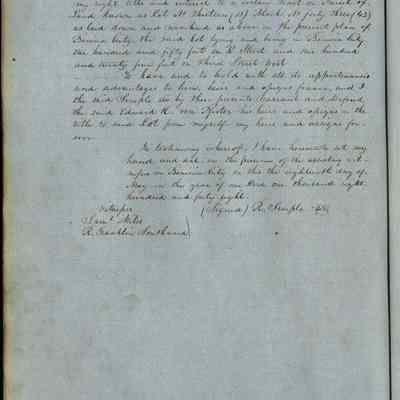 my right title and interest to a certain tract or parcel of
Land known as Lot No Thirteen (13) Block No forty three (43)
as laid down and numbered as above in the present plan of
Benicia City the said Lot lying and being in Benicia City
one hundred and fifty feet on K Street and one hundred
and twenty five feet on Third Street West
To have and to hold with all its appurtenances
and advantages to him, heirs and assigns forever, and I
the said Semple do by these presents warrant and defend
the said Edward H. von Pfister his heirs and assigns in the
title to said Lot from myself my heirs and assigns for-
ever
In testimony whereof, I have hereunto set my
hand and seal in the presence of the attesting wit-
nesses in Benicia City on this the eighteenth day of
May in the year of our Lord one thousand eight
hundred and forty eight.
Witnesses (Signed) R. Semple
Saml
R. Franklin